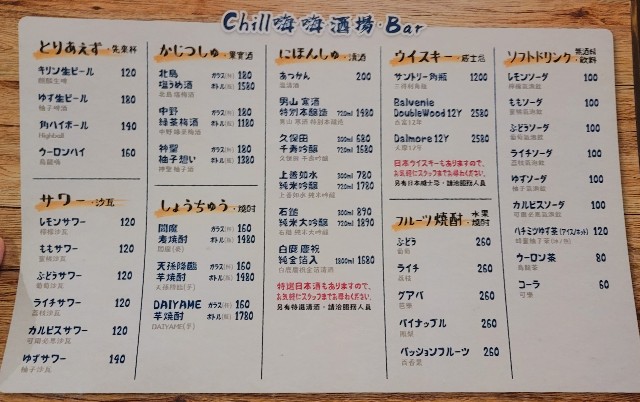 Chill 嗨嗨酒場·Bar
とりあえず·先來杯
キリン生ビール 120
麒麟生啤
ゆず生ビール 180
柚子啤酒
角ハイボール 140
Highball
ウーロンハイ 160
烏龍嗨
サワー·沙瓦
レモンサワー 120
檸檬沙瓦
ももサワー 120
蜜桃沙瓦
ぶどうサワー 120
葡萄沙瓦
ライチサワー 120
荔枝沙瓦
カルピスサワー 120
可爾必思沙瓦
ゆずサワー 140
柚子沙瓦
かじつしゅ·果實酒
北島 グラス(杯) 180
塩うめ酒 ボトル(瓶) 1580
北島 塩梅酒
中野 グラス(杯) 180
緑茶梅酒 ボトル(瓶) 1180
中野 綠茶梅酒
神聖 グラス(杯) 180
柚子想い ボトル(瓶) 1380
神聖 柚子酒
しょうちゅう·燒酎
閻魔 グラス(杯) 160
麦焼酎 ボトル(瓶) 1480
閻魔(麥)
天孫降臨 グラス(杯) 160
芋焼酎 ボトル(瓶) 1480
天孫降臨(芋)
DAIYAME グラス(杯) 160
芋焼酎 ボトル(瓶) 1780
DAIYAME(芋)
にほんしゅ·清酒
あつかん 200
溫清酒
男山 寒酒
特別本醸造 720ml 1480
男山 寒酒 特別本釀造
久保田 300ml 680
千寿吟醸 720ml 1680
久保田 千壽吟釀
上善如水 300ml 780
純米吟醸 720ml 1680
上善如水 純米吟釀
石鎚 300ml 890
純米大吟醸 720ml 1890
石鎚 純米大吟釀
白鹿 慶祝
純金箔入 1800ml 1680
白鹿慶祝金箔清酒
特選日本酒もありますので、
お気軽にスタッフまでお尋ねください。
另有特選清酒·請洽服務人員
ウイスキー·威士忌
サントリー角瓶 1200
三得利角瓶
Balvenie
DoubleWood 12Y 2580
百富12年
Dalmore 12Y 2580
大摩12年
日本ウイスキーもありますので、
お気軽にスタッフまでお尋ねください。
另有日本威士忌·請洽服務人員
フルーツ焼酎·水果燒酎
ぶどう 260
葡萄
ライチ 260
荔枝
グアバ 260
芭樂
パイナップル 260
鳳梨
パッションフルーツ 260
百香果
ソフトドリンク·無酒精飲料
レモンソーダ 100
檸檬氣泡飲
ももソーダ 100
蜜桃氣泡飲
ぶどうソーダ 100
葡萄氣泡飲
ライチソーダ 100
荔枝氣泡飲
ゆずソーダ 100
柚子氣泡飲
カルピスソーダ 100
可爾必思氣泡飲
ハチミツゆず茶(アイス/ホット) 120
蜂蜜柚子茶(冰/熱)
ウーロン茶 80
烏龍茶
コーラ 60
可樂